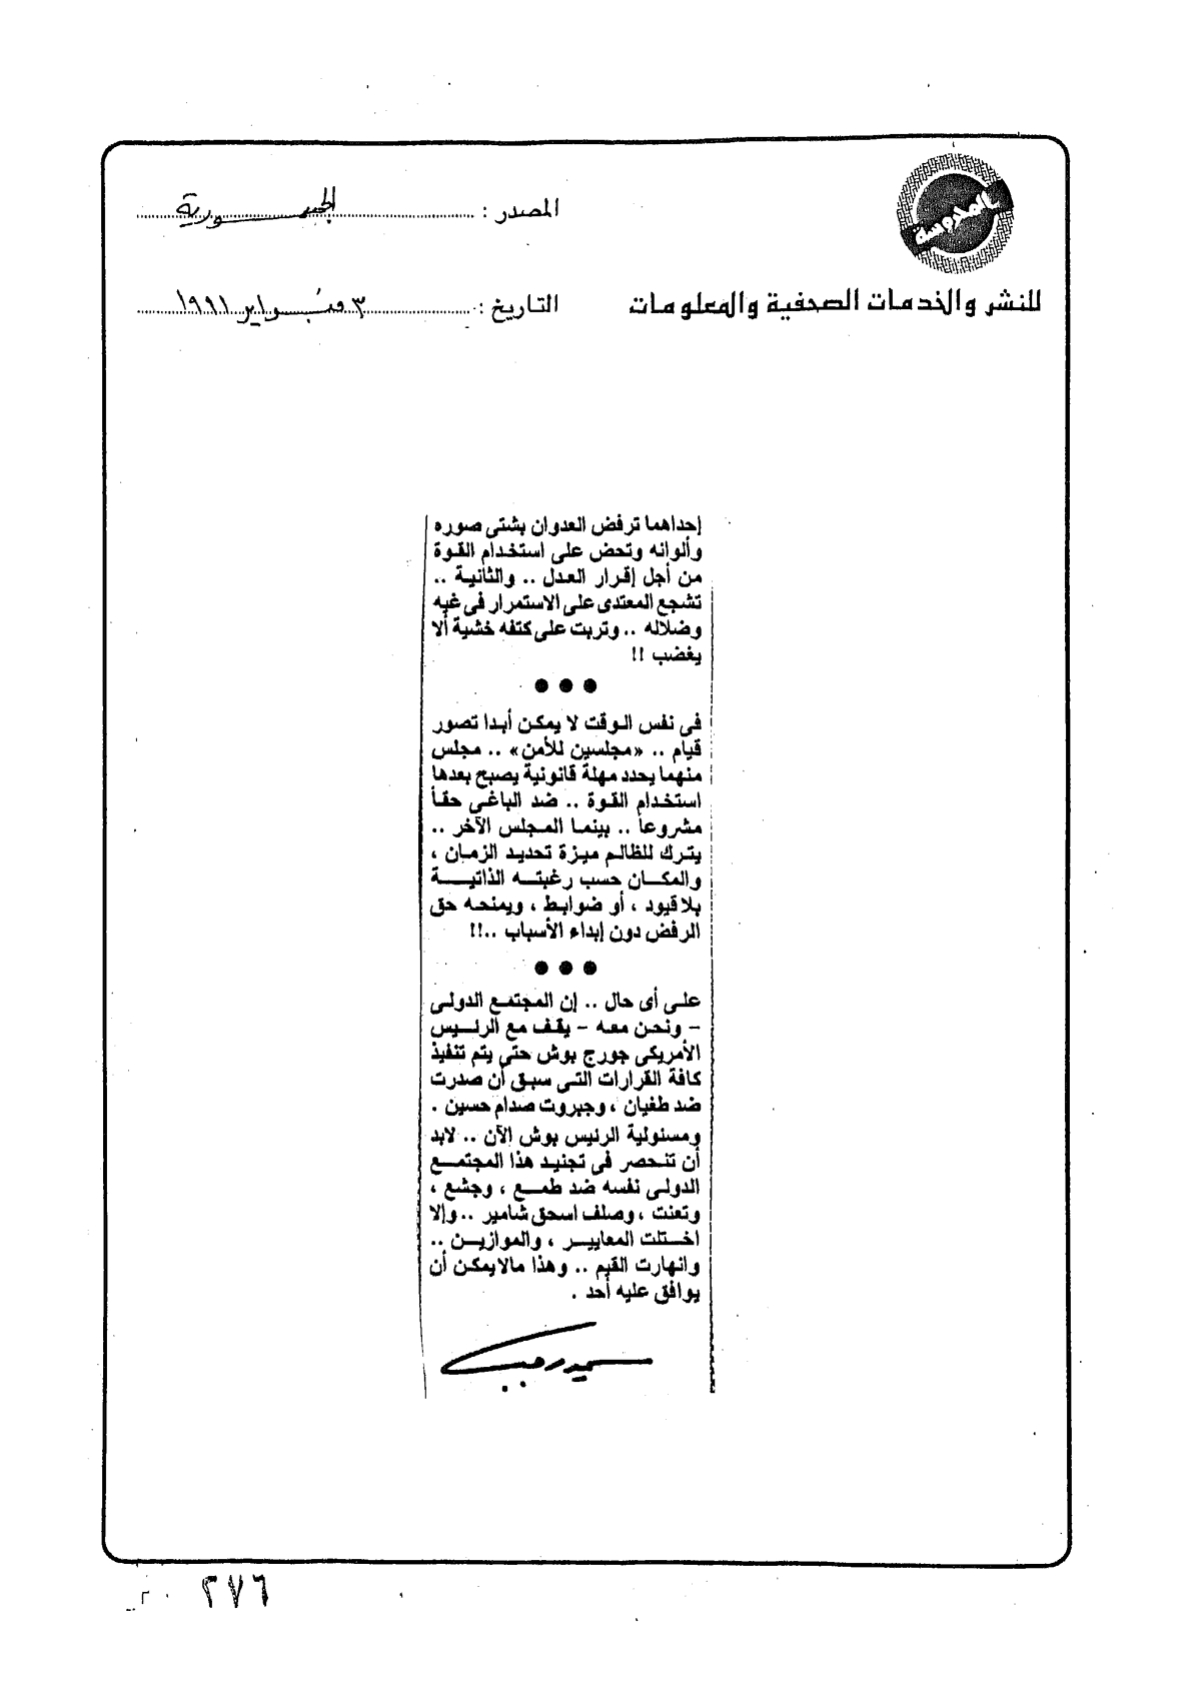 المصدر : الجمهورية
التاريخ : ٣ فبراير ١٩٩١
للنشر والخدمات الصحفية والمعلومات
إحداهما ترفض العدوان بشتى صوره
وألوانه وتحض على استخدام القوة
من أجل إقرار العدل .. والثانية ..
تشجع المعتدى على الاستمرار فى غيه
وضلاله .. وتربت على كتفه خشية ألا
يغضب !!
● ● ●
فى نفس الوقت لا يمكن أبدا تصور
قيام .. «مجلسين للأمن» .. مجلس
منهما يحدد مهلة قانونية يصبح بعدها
استخدام القوة .. ضد الباغى حقاً
مشروعاً .. بينما المجلس الآخر ..
يترك للظالم ميزة تحديد الزمان ،
والمكان حسب رغبته الذاتية
بلا قيود ، أو ضوابط ، ويمنحه حق
الرفض دون إبداء الأسباب ..!!
● ● ●
على أى حال .. إن المجتمع الدولى
- ونحن معه - يقف مع الرئيس
الأمريكى جورج بوش حتى يتم تنفيذ
كافة القرارات التى سبق أن صدرت
ضد طغيان ، وجبروت صدام حسين .
ومسئولية الرئيس بوش الآن .. لابد
أن تنحصر فى تجنيد هذا المجتمع
الدولى نفسه ضد طمع ، وجشع ،
وتعنت ، وصلف اسحق شامير .. وإلا
اختلت المعايير ، والموازين ..
وانهارت القيم .. وهذا مالايمكن أن
يوافق عليه أحد .
سمير رجب
٢٧٦